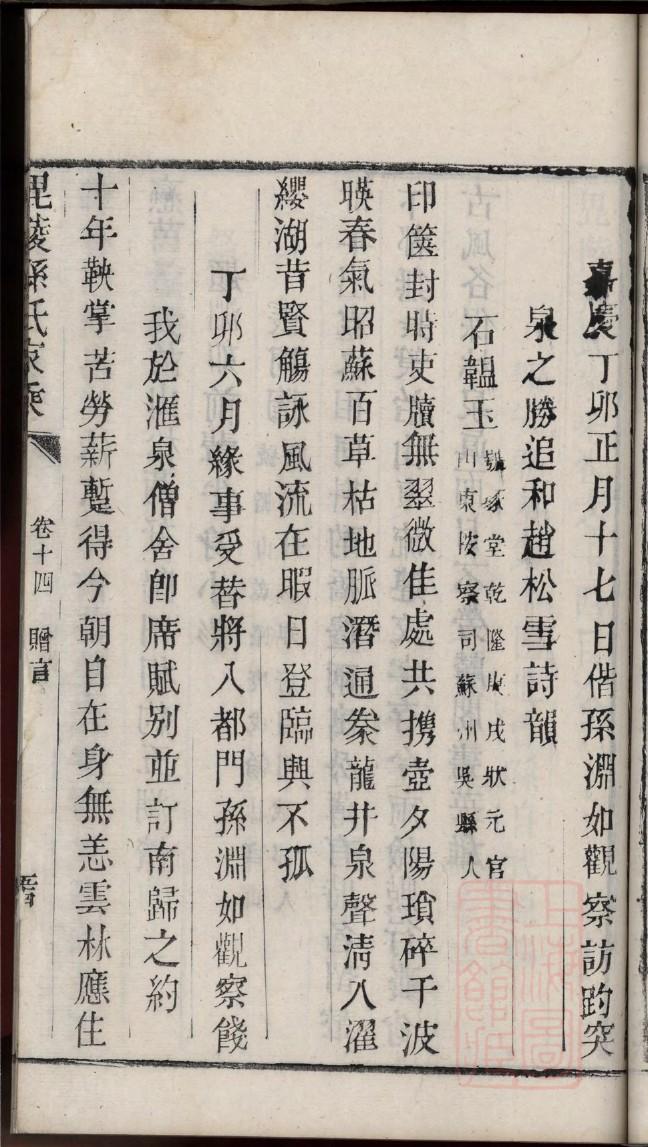 嘉慶丁卯正月十七日偕孫淵如觀察訪趵突
泉之勝追和趙松雪詩韻
石韞玉號琢堂乾隆庚戌狀元官
山東按察司蘇州吳縣人
印篋封時吏牘無翠微佳處共攜壺夕陽瑣碎千波
暎春氣昭蘇百草枯地脈潛通豢龍井泉聲淸入濯
纓湖昔賢觴詠風流在暇日登臨興不孤
丁卯六月緣事受替將入都門孫淵如觀察餞
我於滙泉僧舍卽席賦別並訂南歸之約
十年鞅掌苦勞薪蹔得今朝自在身無恙雲林應住
毘陵孫氏家乘
卷十四 贈言
上海圖書館藏